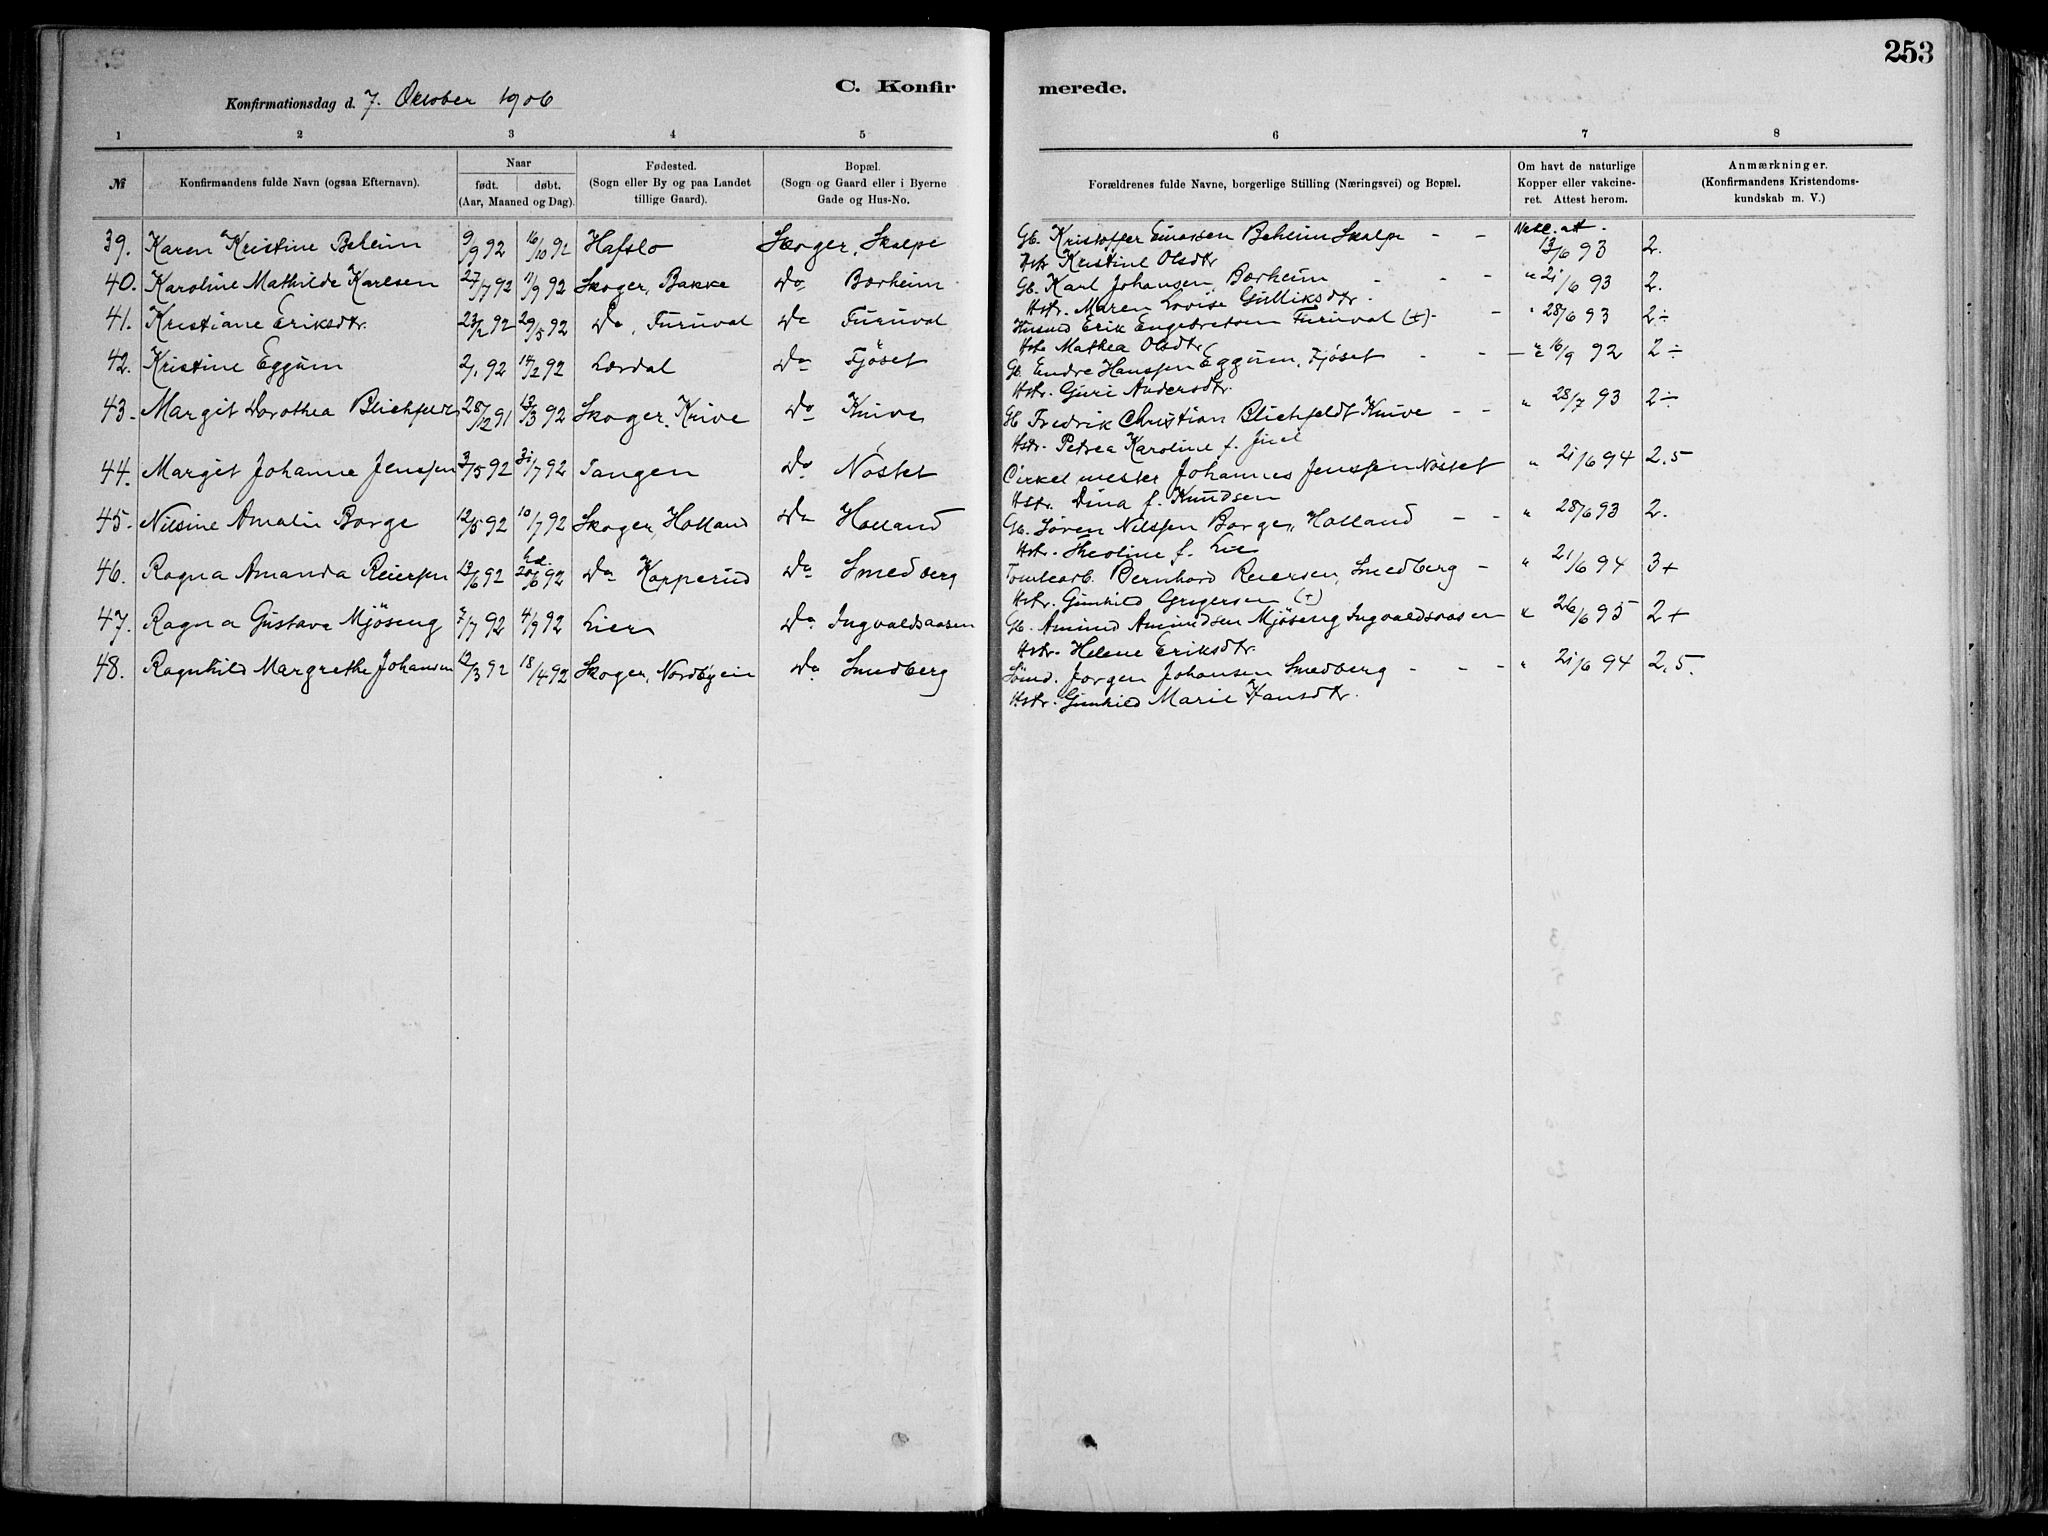 253
C. Konfirmerede.
Konfirmationsdag d. 7. Oktober 1906
1 2 3 4 5 6 7 8
№
Konfirmandens fulde Navn (ogsaa Efternavn).
Naar
født. døbt.
(Aar, Maaned og Dag).
Fødested.
(Sogn eller By og paa Landet
tillige Gaard).
Bopæl.
(Sogn og Gaard eller i Byerne
Gade og Hus-No.
Forældrenes fulde Navne, borgerlige Stilling (Næringsvei) og Bopæl.
Om havt de naturlige
Kopper eller vakcine-
ret. Attest herom.
Anmærkninger.
(Konfirmandens Kristendoms-
kundskab m. V.)
39. Karen Kristine Beheim 9/9 92 16/10 92 Hafslo Skoger, Skalpe Gb. Kristoffer Beheim Skalpe - - Vakc. at. 13/6 93 2.
Hstr Kristine Olsdtr
40. Karoline Mathilde Karlsen 27/7 92 11/9 92 Skoger, Bakke Do Borheim Gb. Karl Johansen Borheim - - - " 21/6 93 2.
Hstr. Maren Lovise Gulliksdtr.
41. Kristiane Eriksdtr. 23/2 92 29/5 92 Do, Furuval Do Furuval Husmd Erik Engebretsen Furuval (+) - - " 28/6 93 2÷
Hstr Mathea Olsdtr
42. Kristine Eggum 2/1 92 14/2 92 Lærdal Do Fjøset Gb. Endre Hanssen Eggum, Fjøset - - - " 16/9 92 2÷
Hstr. Guri Andersdtr.
43. Margit Dorothea Blichfeldt 28/12 91 13/3 92 Skoger, Knive Do Knive Gb Fredrik Christian Blichfeldt Knive - - " 28/7 93 2÷
Hstr. Petrea Karoline f. Juel
44. Margit Johanne Jenssen 3/5 92 31/7 92 Tangen Do Nøstet Cirkelmester Johannes Jenssen Nøstet " 21/6 94 2.5
Hstr. Dina f. Knudsen
45. Nilsine Amalie Borge 12/5 92 10/7 92 Skoger, Holland Do Holland Gb. Søren Nilssen Borge, Holland - - " 28/6 93 2.
Hstr. Theoline f. Lie
46. Ragna Amanda Reiersen 13/6 92 hd. 20/6 92 Do Kopperud Do Smedberg Tomtearb. Bernhard Reiersen, Smedberg - " 21/6 94 3+
Hstr. Gunhild Gregersen (+)
47. Ragna Gustava Mjøseng 7/7 92 4/9 92 Lier Do Ingvaldsaasen Gb. Amund Amundsen Mjøseng Ingvaldsaasen " 26/6 95 2+
Hstr. Helene Eriksdtr.
48. Ragnhild Margrethe Johansen 12/3 92 18/4 92 Skoger, Nordbyein Do Smedberg Jørgen Johansen Smedberg - - - " 21/6 94 2.5.
Hstr. Gunhild Marie Hansdtr.